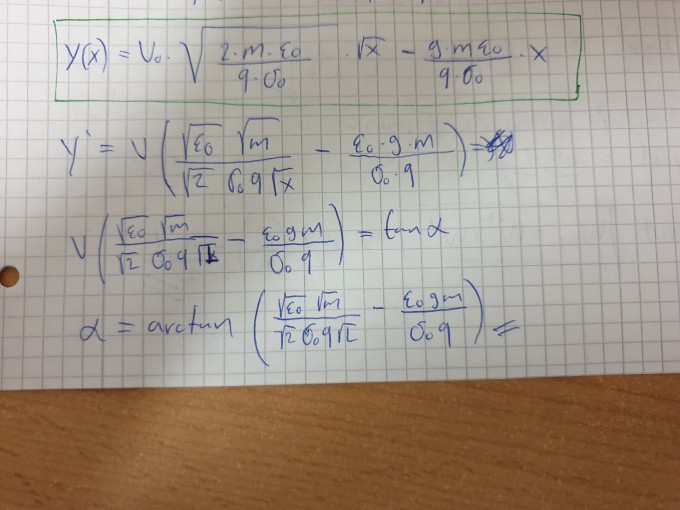 y(x) = v₀ · √(2·m·ε₀ / q·σ₀) · √x − g·m ε₀ / q·σ₀ · x
y' = v (√ε₀ √m / √2 σ₀ q √x − ε₀·g·m / σ₀·q) =
v (√ε₀ √m / √2 σ₀ q − ε₀ g m / σ₀ q) = tan α
α = arctan (√ε₀ √m / √2 σ₀ q √2 − ε₀ g m / σ₀ q) =